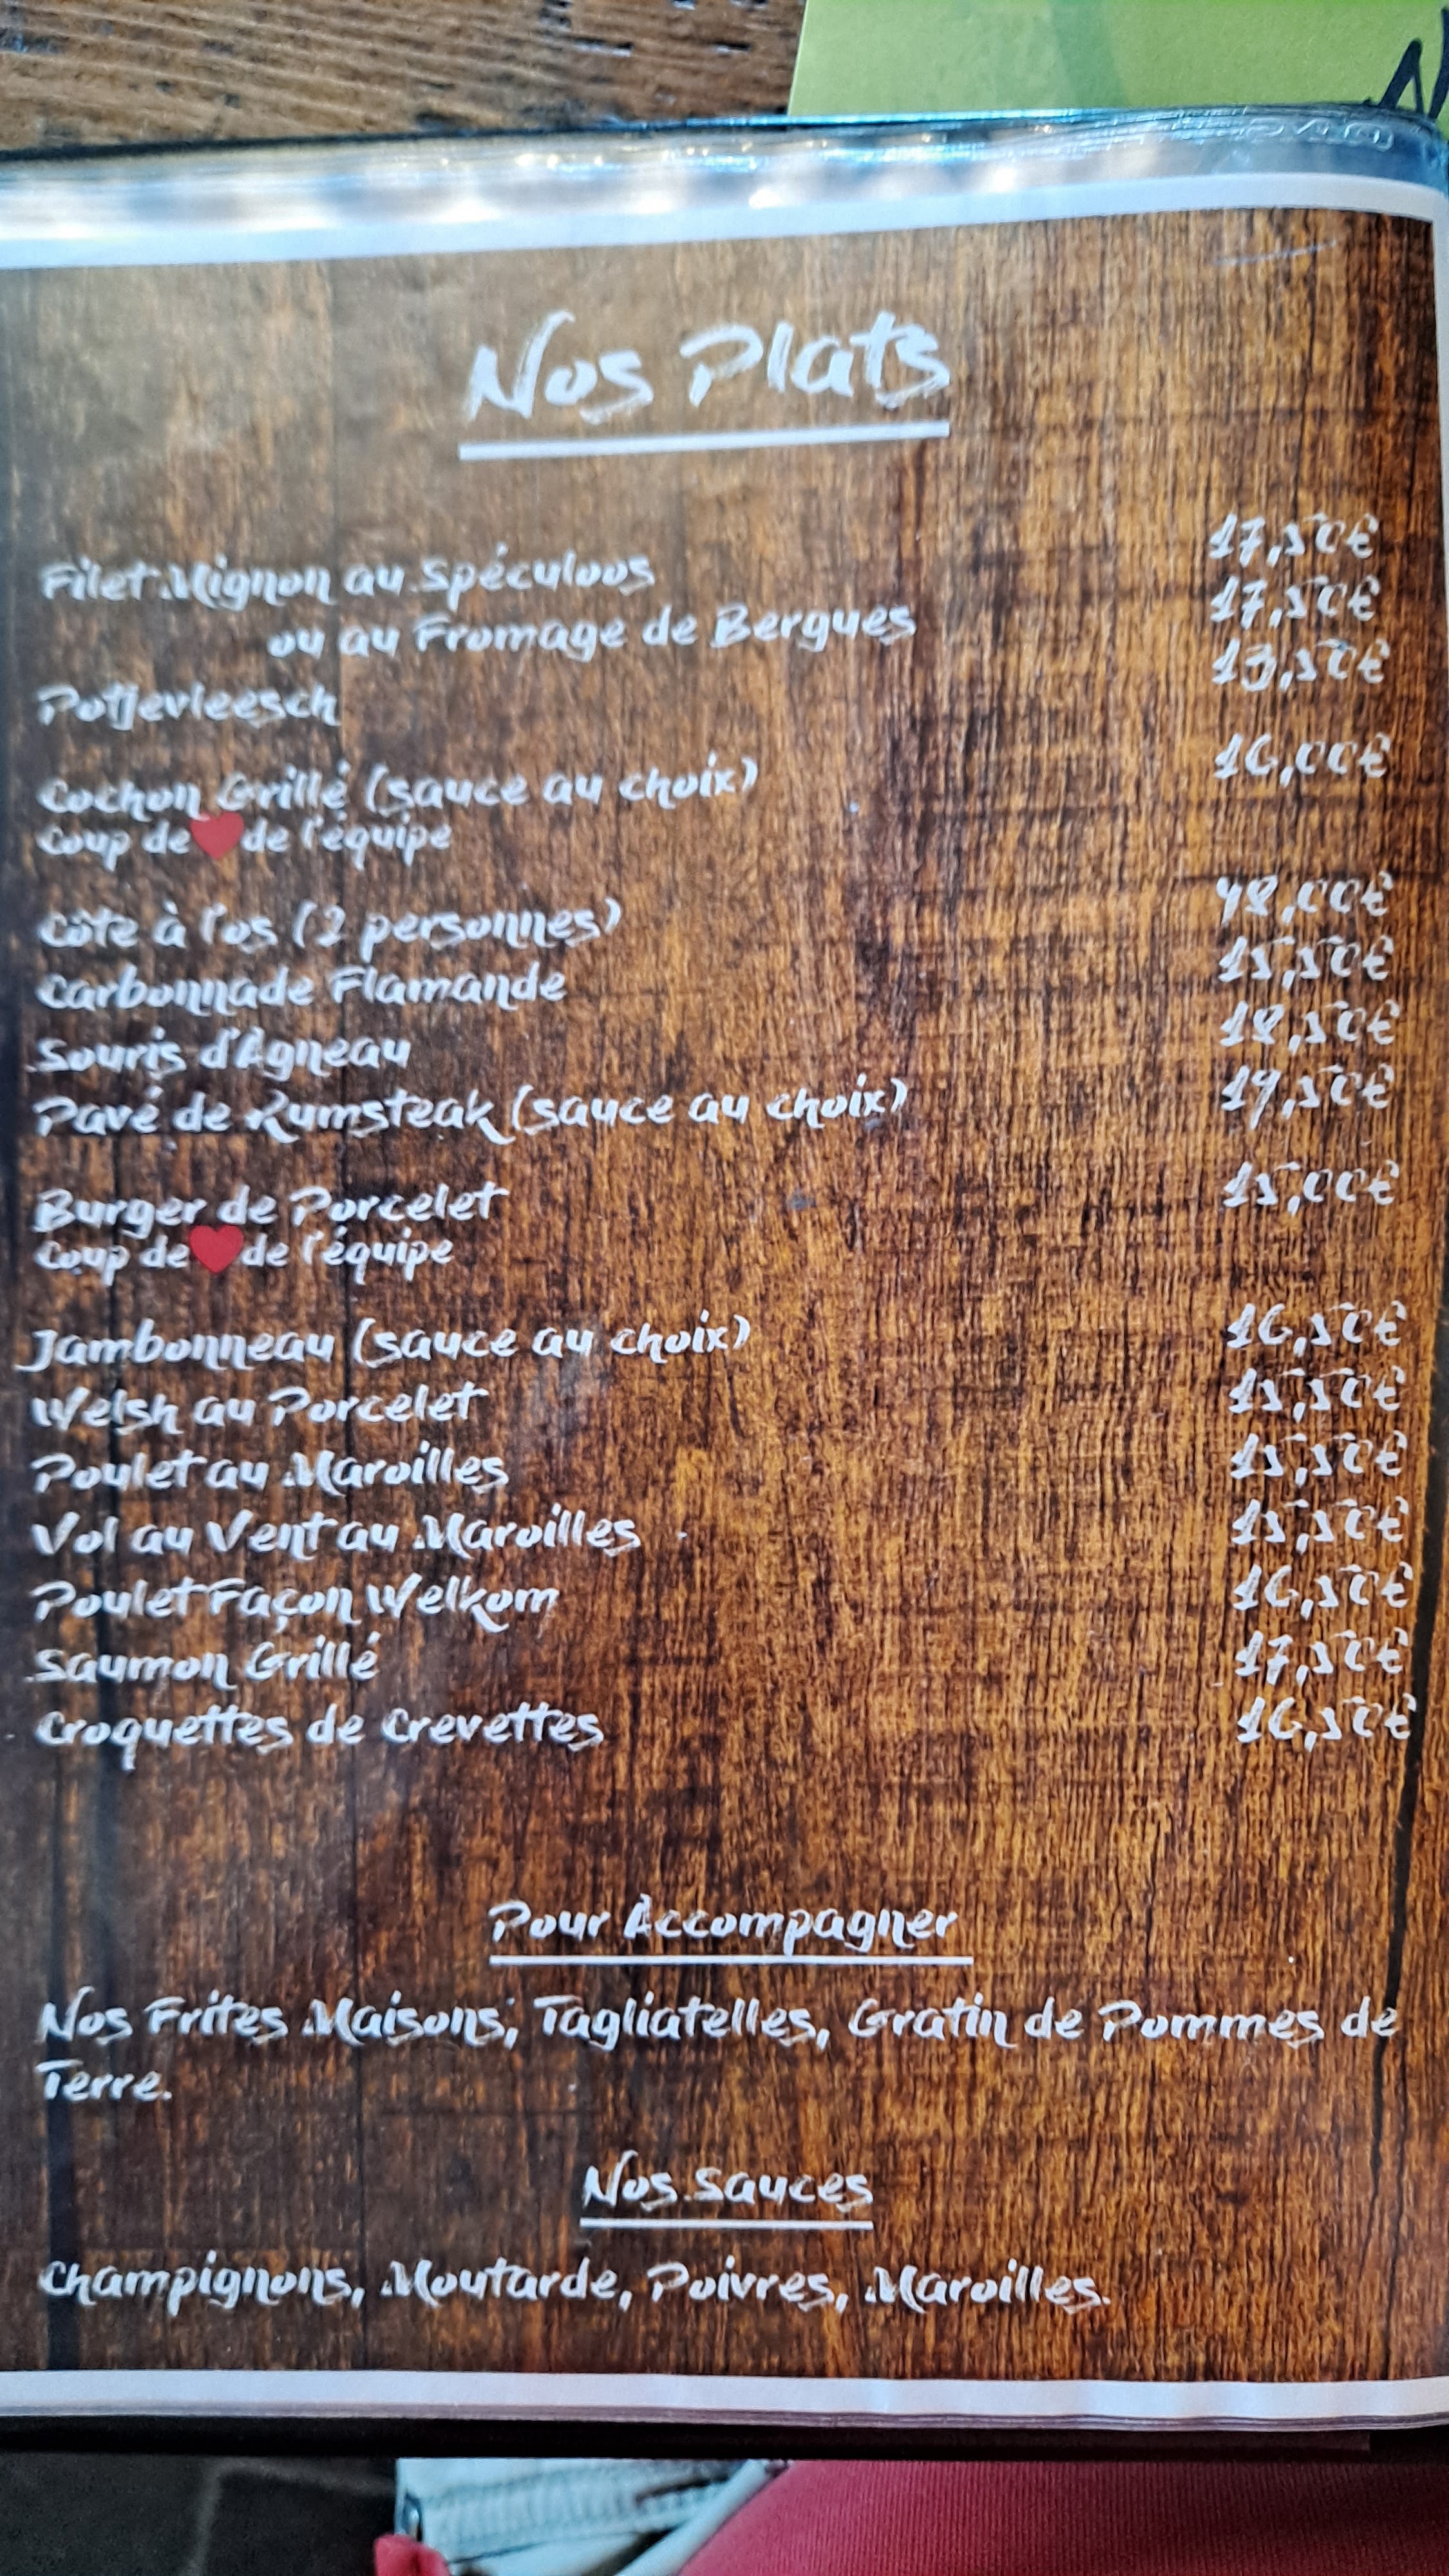 Nos Plats
Filet Mignon au Spéculoos 17,50€
ou au Fromage de Bergues 17,50€
Potjevleesch 13,50€
Cochon Grillé (sauce au choix) 16,00€
Coup de ❤ de l'équipe
Côte à l'os (2 personnes) 48,00€
Carbonnade Flamande 15,50€
Souris d'Agneau 18,50€
Pavé de Rumsteak (sauce au choix) 19,50€
Burger de Porcelet 15,00€
Coup de ❤ de l'équipe
Jambonneau (sauce au choix) 16,50€
Welsh au Porcelet 15,50€
Poulet au Maroilles 15,50€
Vol au Vent au Maroilles 15,50€
Poulet Façon Welkom 16,50€
Saumon Grillé 17,50€
Croquettes de Crevettes 16,50€
Pour Accompagner
Nos Frites Maisons, Tagliatelles, Gratin de Pommes de
Terre.
Nos Sauces
Champignons, Moutarde, Poivres, Maroilles.